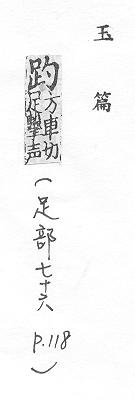 玉篇
趵 方車切 足擊声
(足部七十六 p.118)